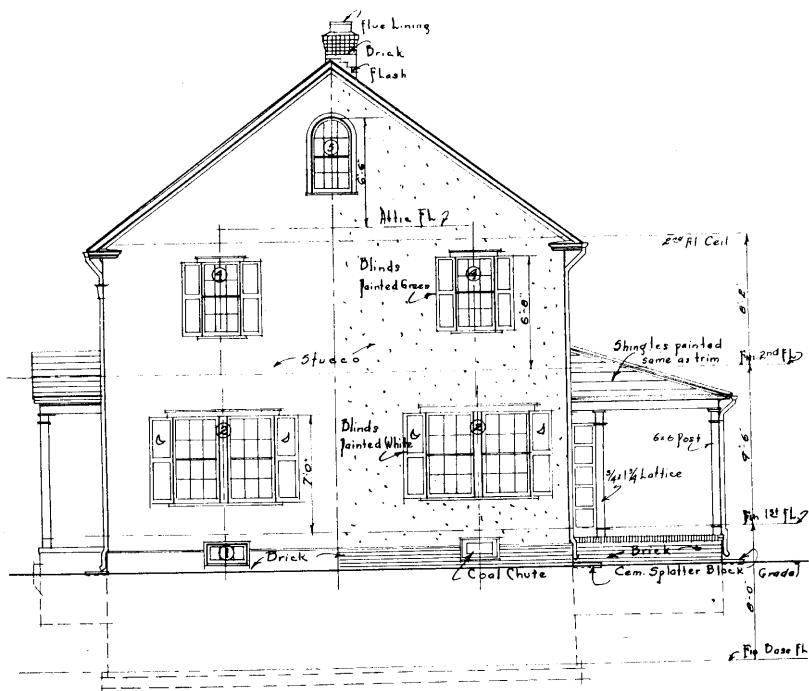 Flue Lining
Brick
Flash
5
6'-6"
Attic Fl.
2nd Fl Ceil
4
Blinds
Painted Green
4
6'-8"
8'-2"
Stucco
Shingles painted
same as trim
Fin 2nd Fl.
2
Blinds
Painted White
2
7'-0"
6x6 Post
9'-6"
3/4 x 1 3/4 Lattice
Fin 1st Fl.
1
Brick
Coal Chute
Brick
Cem. Splatter Block
Grade
8'-0"
Fin Base Fl.